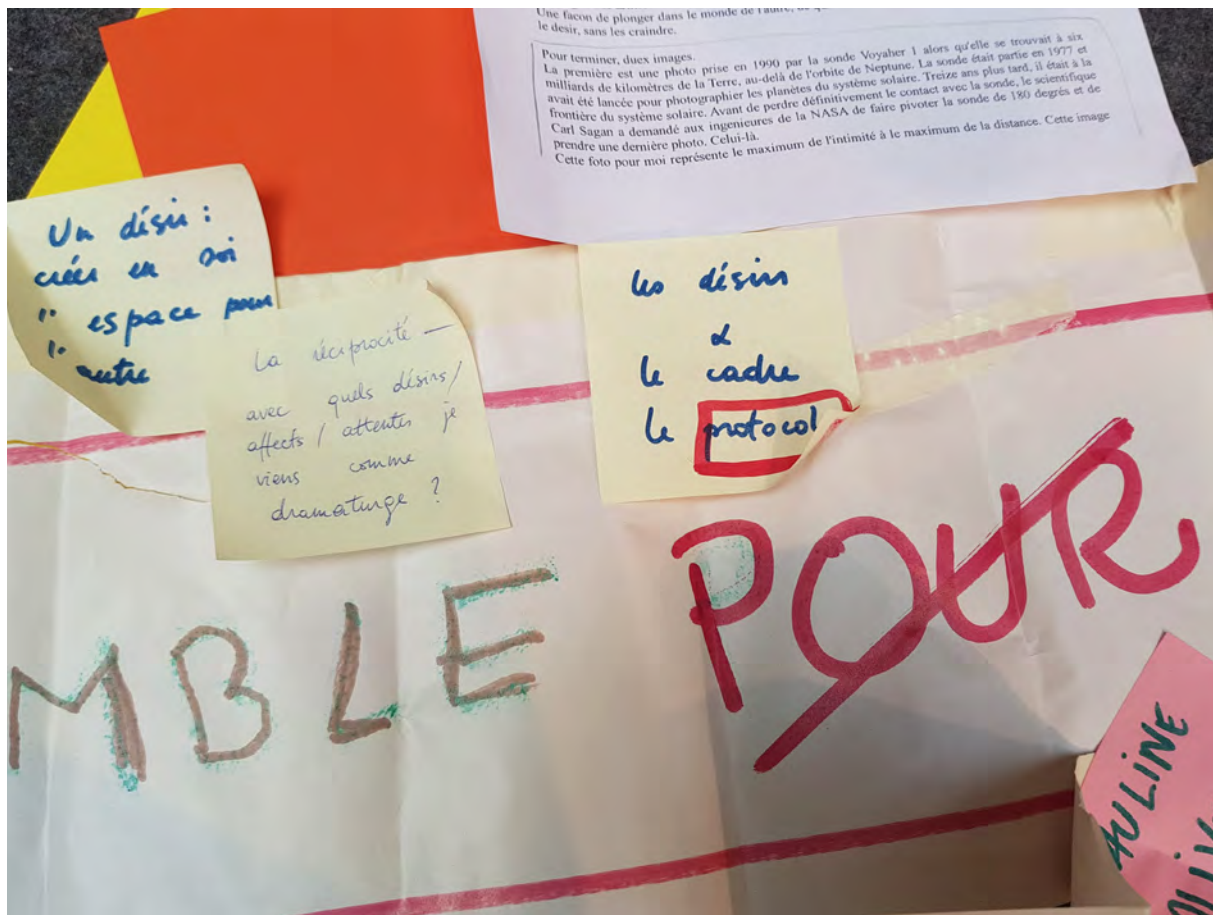 Une facon de plonger dans le monde de l'autre,
le desir, sans les craindre.
Pour terminer, duex images.
La première est une photo prise en 1990 par la sonde Voyaher 1 alors qu'elle se trouvait à six
milliards de kilomètres de la Terre, au-delà de l'orbite de Neptune. La sonde était partie en 1977 et
avait été lancée pour photographier les planètes du système solaire. Treize ans plus tard, il était à la
frontière du système solaire. Avant de perdre définitivement le contact avec la sonde, le scientifique
Carl Sagan a demandé aux ingenieures de la NASA de faire pivoter la sonde de 180 degrés et de
prendre une dernière photo. Celui-là.
Cette foto pour moi représente le maximum de l'intimité à le maximum de la distance. Cette image
Un désir :
créer en soi
espace pour
l'autre
La réciprocité —
avec quels désirs/
affects / attentes je
viens comme
dramaturge ?
les désirs
&
le cadre
le protocol
MBLE POUR
AULINE